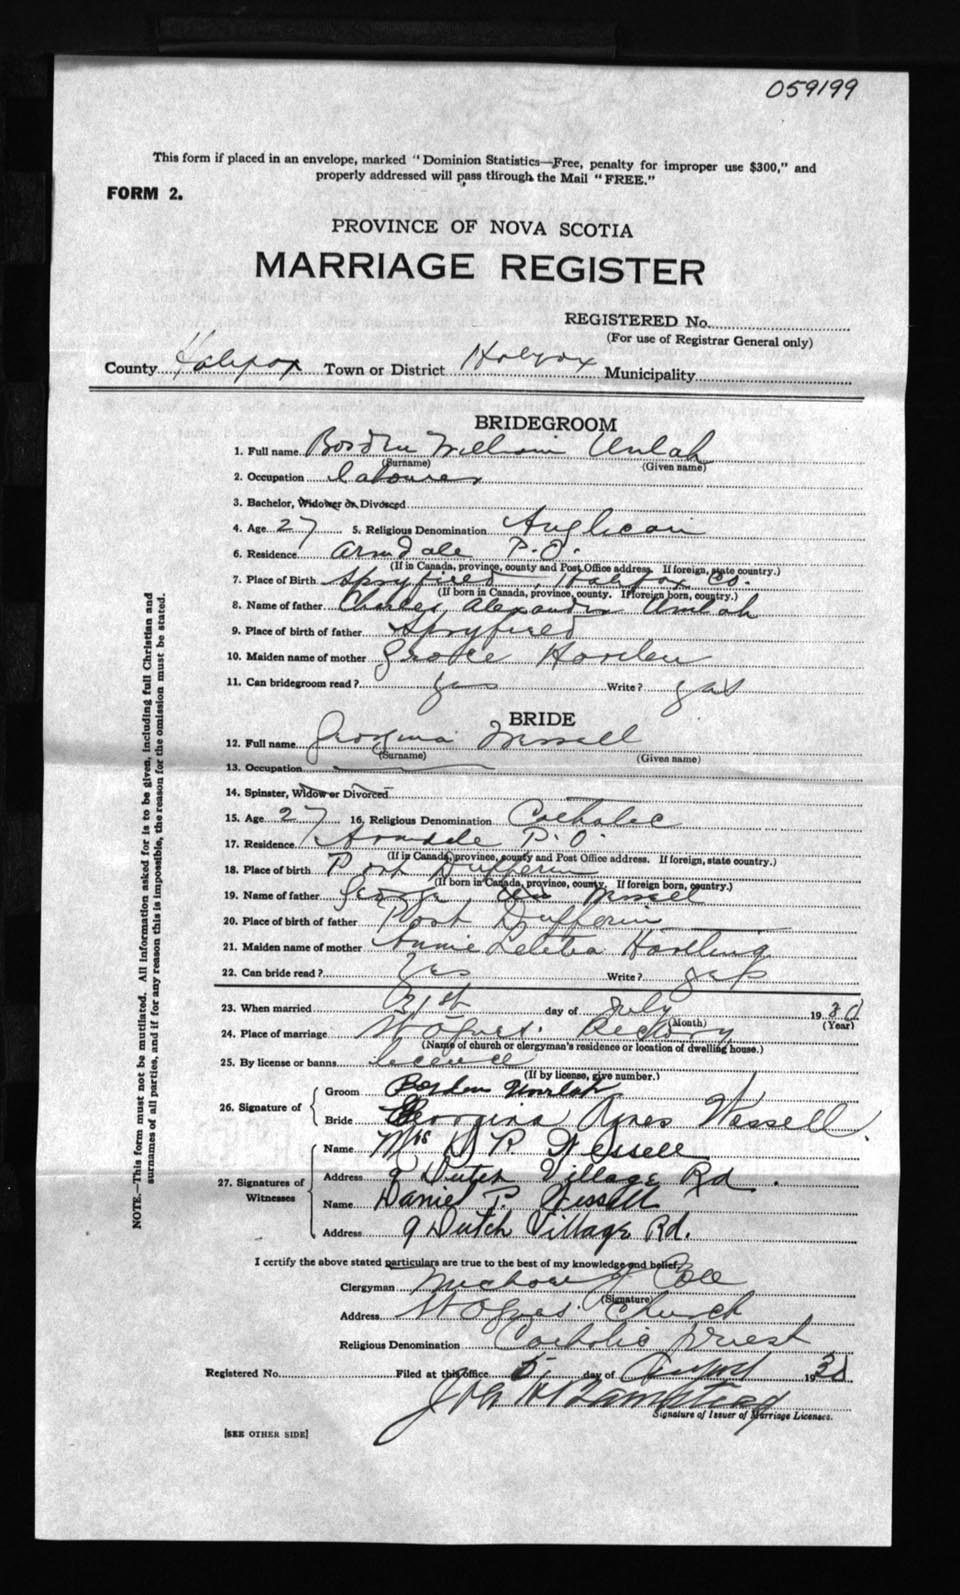 059199
This form if placed in an envelope, marked "Dominion Statistics—Free, penalty for improper use $300," and
properly addressed will pass through the Mail "FREE."
FORM 2.
PROVINCE OF NOVA SCOTIA
MARRIAGE REGISTER
REGISTERED No.
(For use of Registrar General only)
County Halifax Town or District Halifax Municipality
BRIDEGROOM
1. Full name Borden William Umlah
(Surname) (Given name)
2. Occupation labourer
3. Bachelor, Widower or Divorced
4. Age 27 5. Religious Denomination Anglican
6. Residence Armdale P.O.
(If in Canada, province, county and Post Office address. If foreign, state country.)
7. Place of Birth Spryfield Halifax Co.
(If born in Canada, province, county. If foreign born, country.)
8. Name of father Charles Alexander Umlah
9. Place of birth of father Spryfield
10. Maiden name of mother
11. Can bridegroom read? yes Write? yes
BRIDE
12. Full name Georgina Wessell
(Surname) (Given name)
13. Occupation
14. Spinster, Widow or Divorced
15. Age 27 16. Religious Denomination Catholic
17. Residence Armdale P.O.
(If in Canada, province, county and Post Office address. If foreign, state country.)
18. Place of birth Port Dufferin
(If born in Canada, province, county. If foreign born, country.)
19. Name of father George Wessell
20. Place of birth of father Port Dufferin
21. Maiden name of mother Annie Letitia Hartling
22. Can bride read? Yes Write? yes
23. When married 21st day of July 1930
(Month) (Year)
24. Place of marriage St Agnes' Rectory
(Name of church or clergyman's residence or location of dwelling house.)
25. By license or banns licence
(If by license, give number.)
26. Signature of
Groom Borden Umlah
Bride Georgina Agnes Wessell.
27. Signatures of Witnesses
Name Mrs D P Wessell
Address 9 Dutch Village Rd.
Name Daniel P. Wessell
Address 9 Dutch Village Rd.
I certify the above stated particulars are true to the best of my knowledge and belief.
Clergyman Michael
(Signature)
Address St Agnes' Church
Religious Denomination Catholic Priest
Registered No. Filed at this office 5 day of August 1930
Signature of Issuer of Marriage Licenses.
[SEE OTHER SIDE]
NOTE.—This form must not be mutilated. All information asked for is to be given, including full Christian and
surnames of all parties, and if for any reason this is impossible, the reason for the omission must be stated.